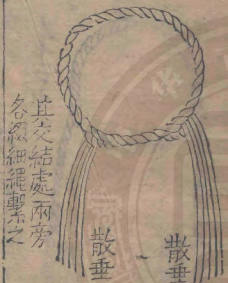 其交結處兩旁
各綴細繩繫之
散垂
散垂